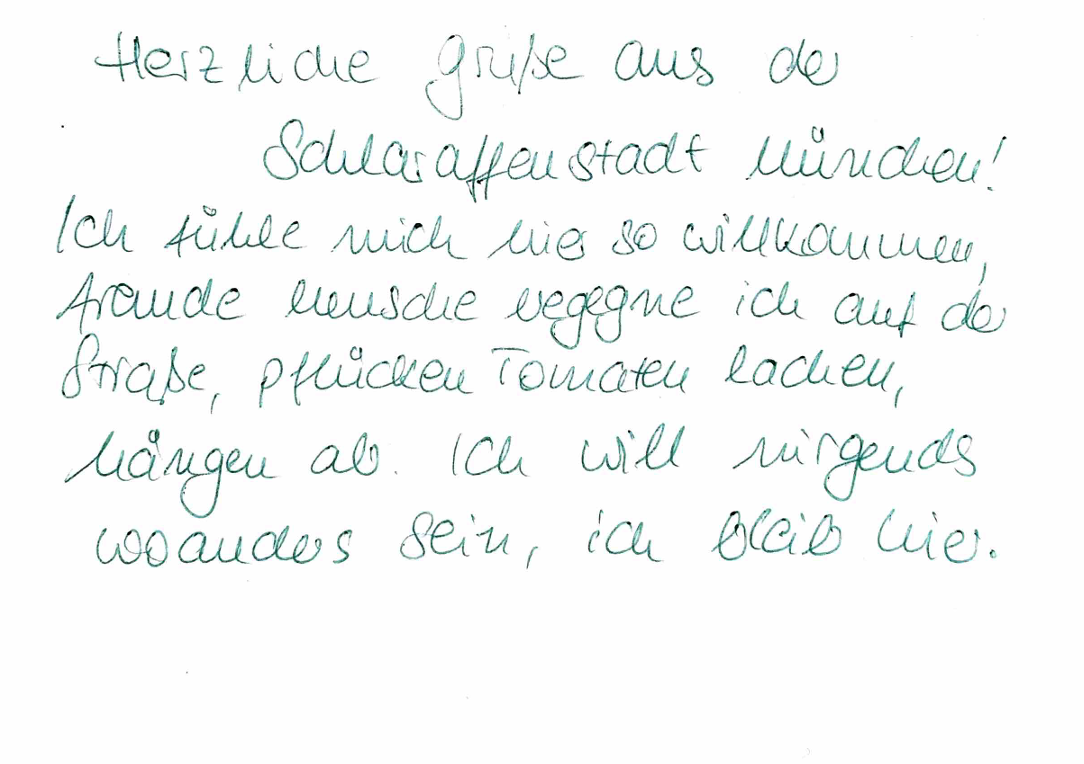 Herzliche Grüße aus der
Schlaraffenstadt München!
Ich fühle mich hier so willkommen,
fremde Mensche begegne ich auf der
Straße, pflücken Tomaten lachen,
hängen ab. Ich will nirgends
woanders sein, ich bleib hier.